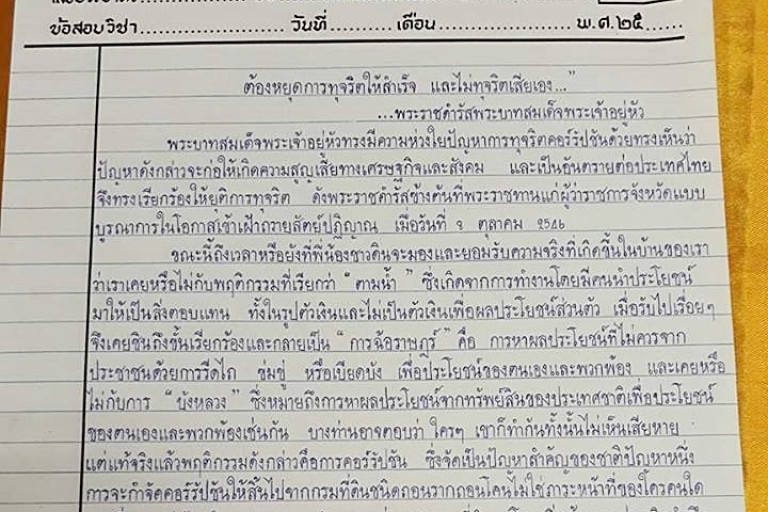 ข้อสอบวิชา........................ วันที่........... เดือน....................... พ.ศ.๒๕......
ต้องหยุดการทุจริตให้สำเร็จ และไม่ทุจริตเสียเอง..."
...พระราชดำรัสพระบาทสมเด็จพระเจ้าอยู่หัว
พระบาทสมเด็จพระเจ้าอยู่หัวทรงมีความห่วงใยปัญหาการทุจริตคอร์รัปชันด้วยทรงเห็นว่า
ปัญหาดังกล่าวจะก่อให้เกิดความสูญเสียทางเศรษฐกิจและสังคม และเป็นอันตรายต่อประเทศไทย
จึงทรงเรียกร้องให้ยุติการทุจริต ดังพระราชดำรัสข้างต้นที่พระราชทานแก่ผู้ว่าราชการจังหวัดแบบ
บูรณาการในโอกาสเข้าเฝ้าถวายสัตย์ปฏิญาณ เมื่อวันที่ ตุลาคม 2546
ขณะนี้ถึงเวลาหรือยังที่พี่น้องชาวดินจะมองและยอมรับความจริงที่เกิดขึ้นในบ้านของเรา
ว่าเราเคยหรือไม่กับพฤติกรรมที่เรียกว่า "ตามน้ำ" ซึ่งเกิดจากการทำงานโดยมีคนนำประโยชน์
มาให้เป็นสิ่งตอบแทน ทั้งในรูปตัวเงินและไม่เป็นตัวเงินเพื่อผลประโยชน์ส่วนตัว เมื่อรับไปเรื่อยๆ
จึงเคยชินถึงขั้นเรียกร้องและกลายเป็น "การฉ้อราษฎร์" คือ การหาผลประโยชน์ที่ไม่ควรจาก
ประชาชนด้วยการรีดไถ ข่มขู่ หรือเบียดบัง เพื่อประโยชน์ของตนเองและพวกพ้อง และเคยหรือ
ไม่กับการ "บังหลวง" ซึ่งหมายถึงการหาผลประโยชน์จากทรัพย์สินของประเทศชาติเพื่อประโยชน์
ของตนเองและพวกพ้องเช่นกัน บางท่านอาจตอบว่า ใครๆ เขาก็ทำกันทั้งนั้นไม่เห็นเสียหาย
แต่แท้จริงแล้วพฤติกรรมดังกล่าวคือการคอร์รัปชัน ซึ่งจัดเป็นปัญหาสำคัญของชาติปัญหาหนึ่ง
การจะกำจัดคอร์รัปชันให้สิ้นไปจากกรมที่ดินชนิดถอนรากถอนโคนไม่ใช่ภาระหน้าที่ของใครคนใด